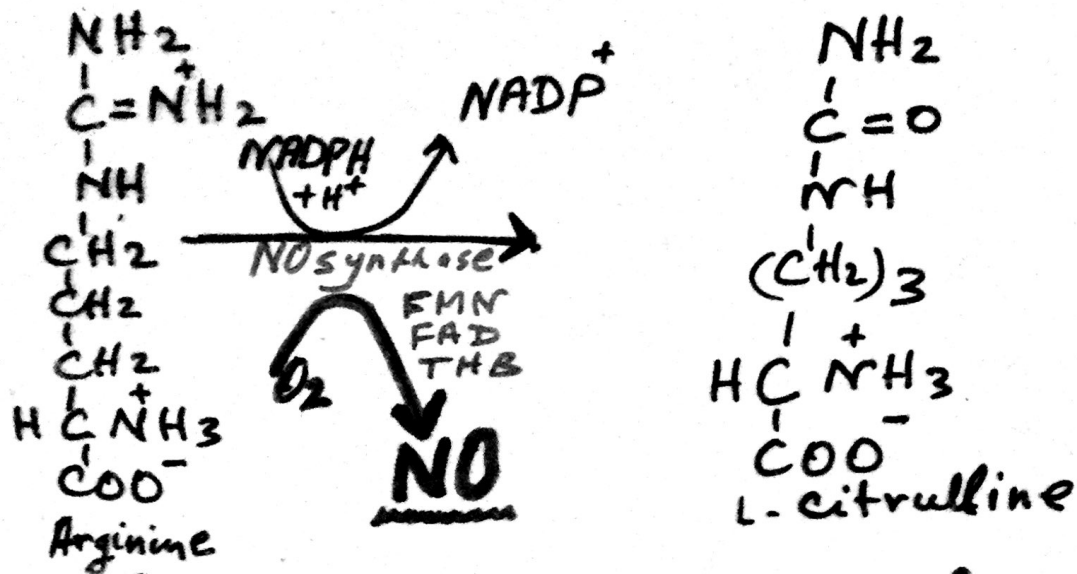 NH2
C=NH2
+
NH
CH2
CH2
CH2
+
H C NH3
COO-
Arginine
NADPH
+H+
NADP+
NO synthase
FMN
FAD
THB
O2
NO
NH2
C=O
NH
(CH2)3
+
HC NH3
COO-
L-citrulline